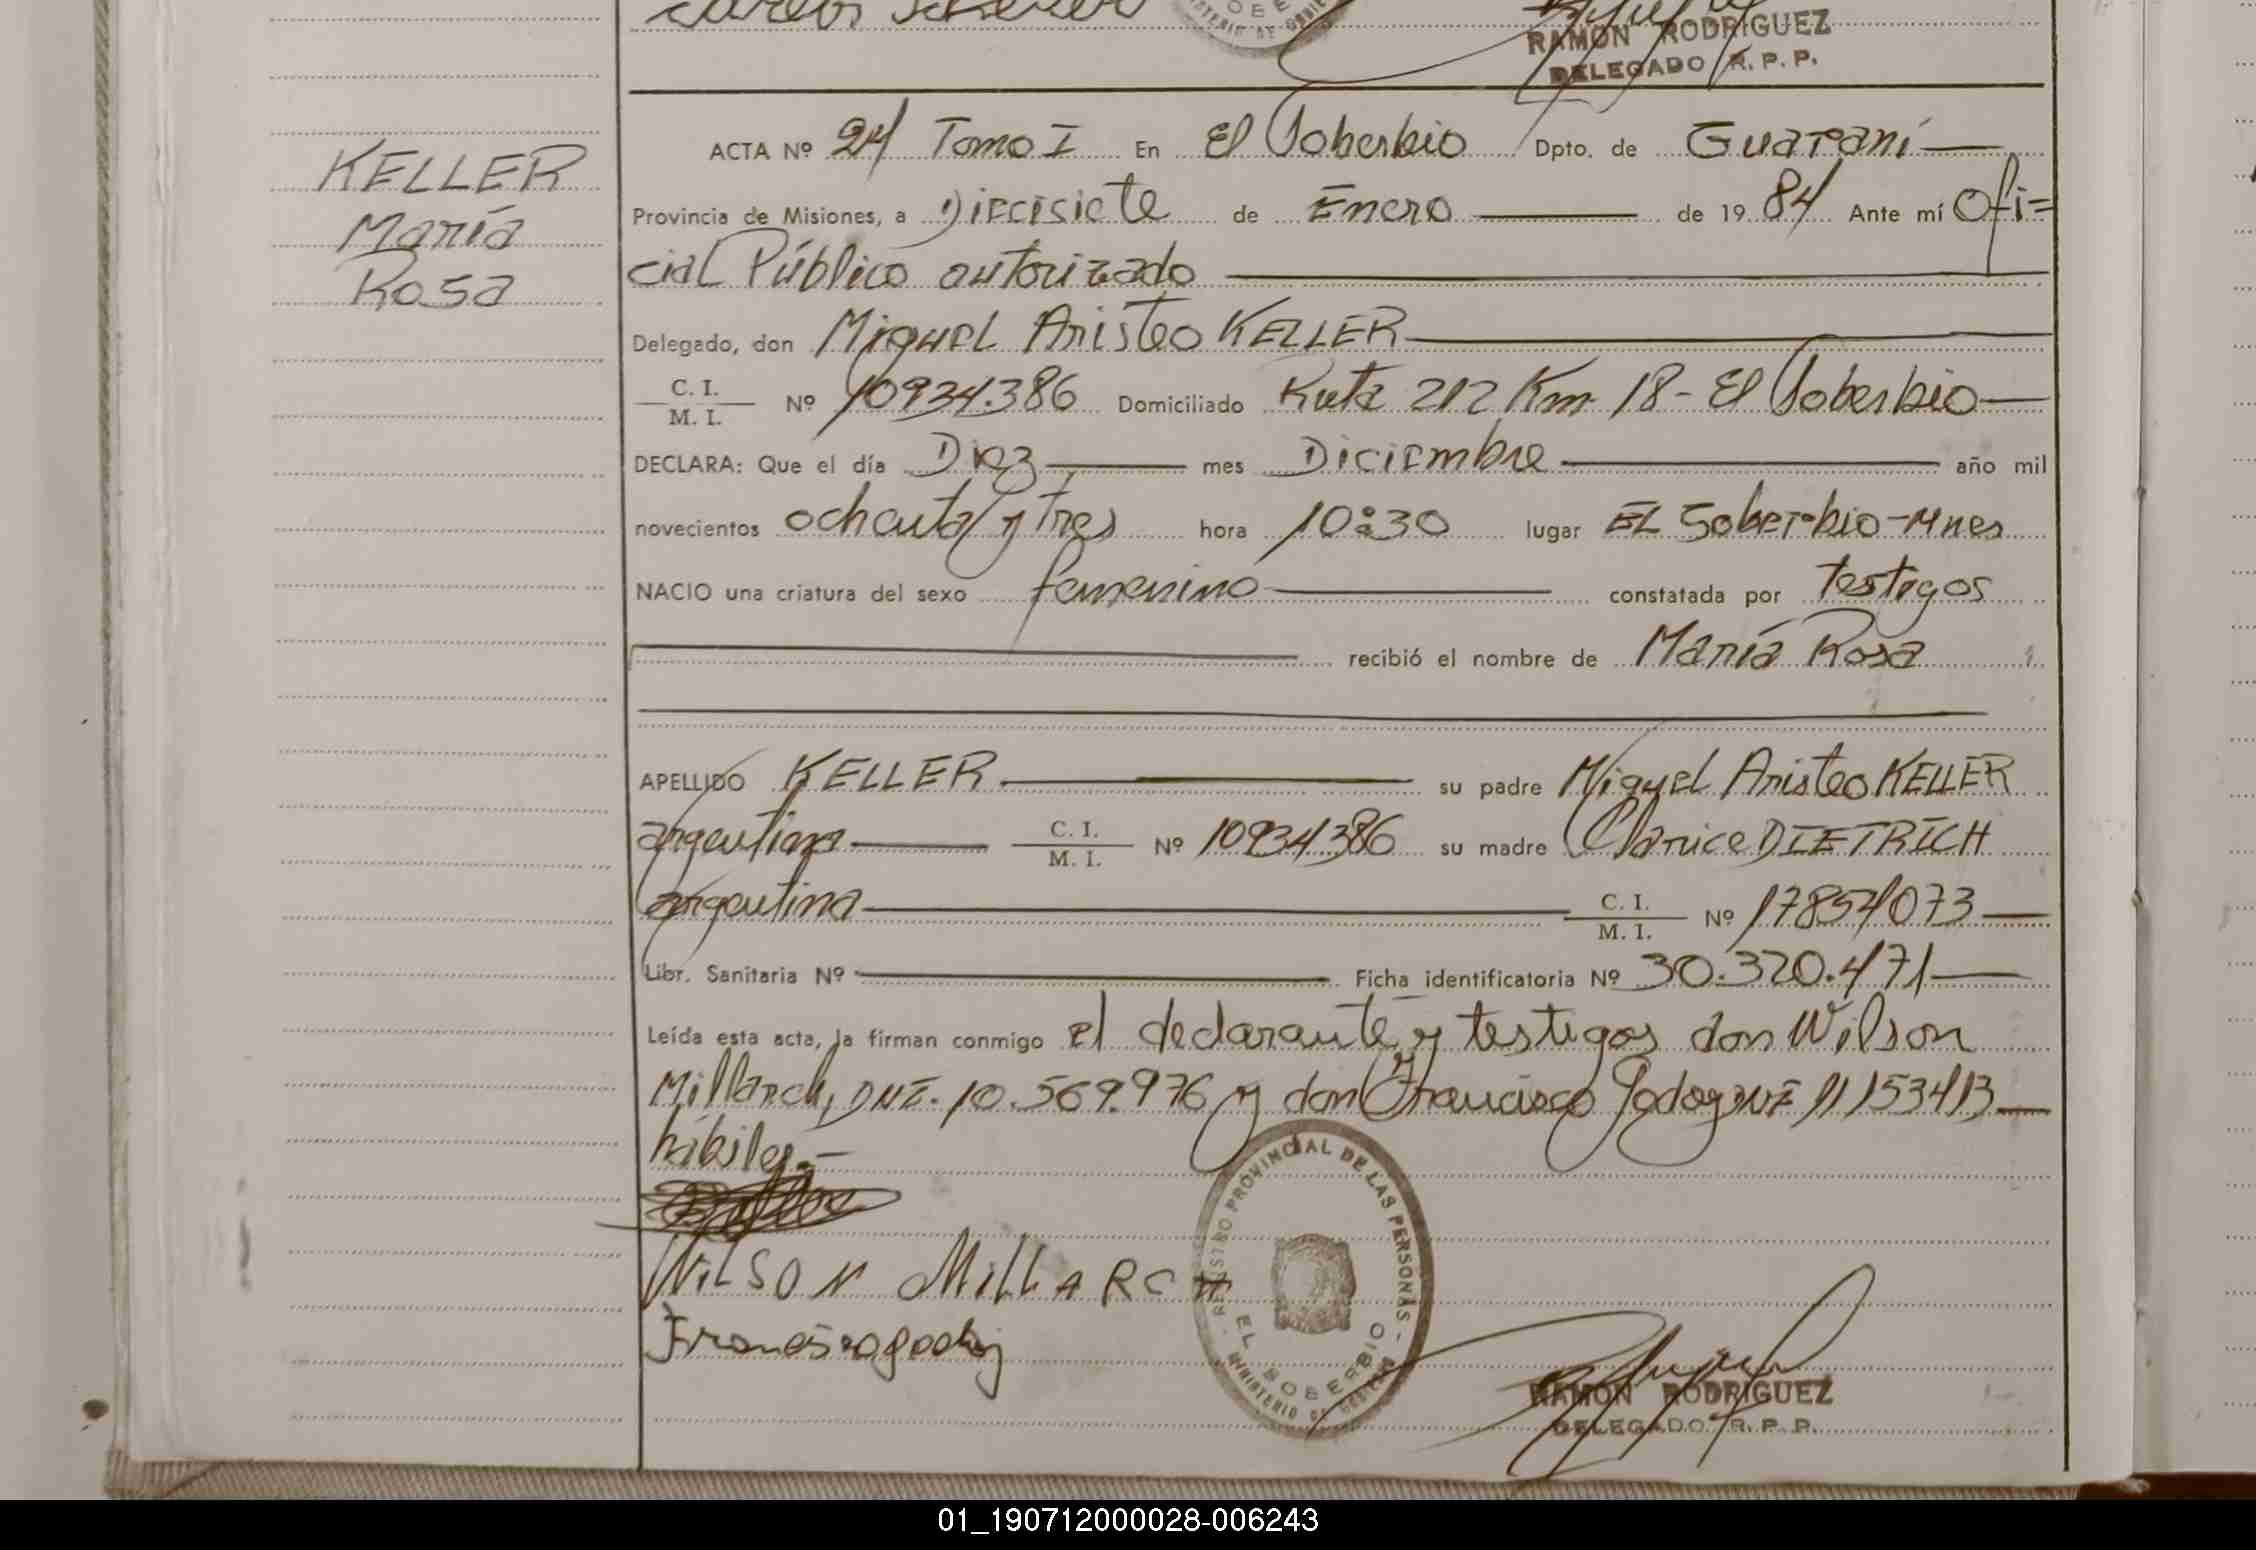 RAMON RODRIGUEZ
DELEGADO R. P. P.
KELLER
María
Rosa
ACTA Nº 24 Tomo I En El Soberbio Dpto. de Guaraní
Provincia de Misiones, a Diecisiete de Enero de 1984 Ante mí Ofi=
cial Público autorizado
Delegado, don Miguel Aristeo KELLER
C. I.
M. I. Nº 10934.386 Domiciliado Ruta 212 Km 18 - El Soberbio
DECLARA: Que el día Diez mes Diciembre año mil
novecientos ochenta y tres hora 10:30 lugar EL Soberbio - Mnes
NACIO una criatura del sexo femenino constatada por testigos
recibió el nombre de María Rosa
APELLIDO KELLER su padre Miguel Aristeo KELLER
argentina C. I. M. I. Nº 10934386 su madre Clarice DIETRICH
argentina C. I. M. I. Nº 17854073
Libr. Sanitaria Nº Ficha identificatoria Nº 30.320.471
Leída esta acta, la firman conmigo el declarante y testigos don Wilson
Millarch, DNI. 10.569.976 y don Francisco Godoy DNI 11153413
hábiles.-
WILSON MILLARCH
Francisco godoy
REGISTRO PROVINCIAL DE LAS PERSONAS
EL SOBERBIO
MINISTERIO DE GOBIERNO
RAMON RODRIGUEZ
DELEGADO R. P. P.
01_190712000028-006243